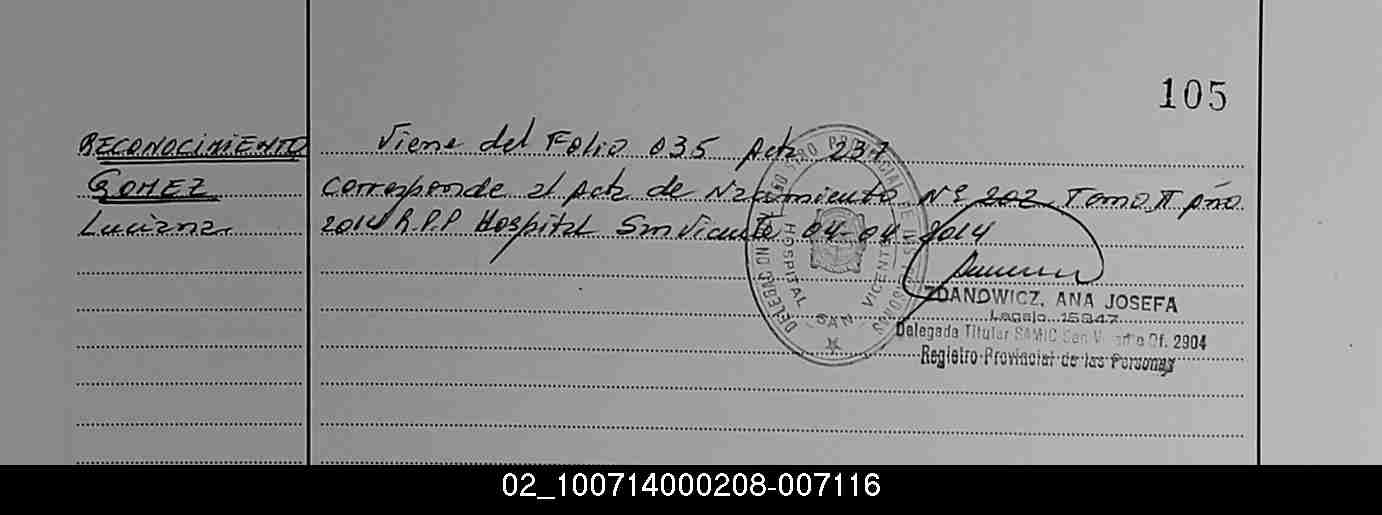 105
RECONOCIMIENTO
GOMEZ
Luciana
Viene del Folio 035 Acta 237
Corresponde al Acta de Nacimiento Nº 202 Tomo II Año
2014 R.P.P Hospital San Vicente 04-04-2014
HOSPITAL SAN VICENTE
ZDANOWICZ, ANA JOSEFA
Legajo 15347
Delegada Titular SAMIC San Vicente Of. 2904
Registro Provincial de las Personas
02_100714000208-007116